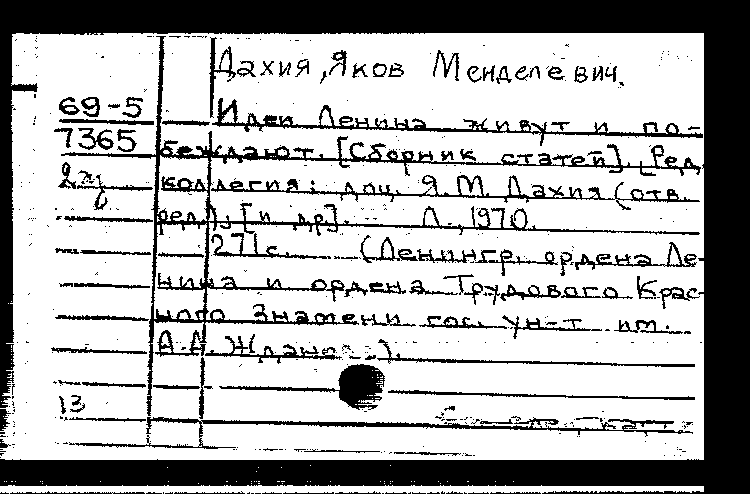 Дахия, Яков Менделевич.
69-5
7365
Идеи Ленина живут и по-
беждают. [Сборник статей]. [Ред.
коллегия: доц. Я.М. Дахия (отв.
ред.), [и др]. Л., 1970.
271с. (Ленингр. ордена Ле-
нина и ордена Трудового Крас-
ного Знамени гос. ун-т им.
А.А. Жданова).
13